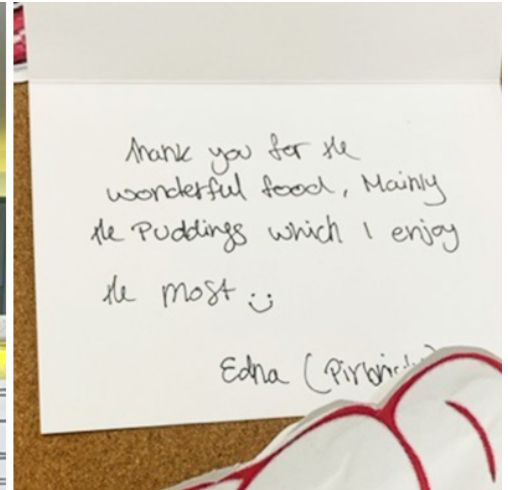 Thank you for the
wonderful food, Mainly
the Puddings which I enjoy
the most :)
Edna